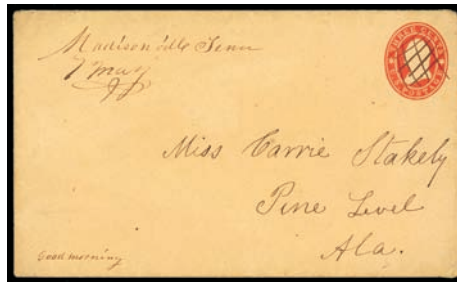 Madisonville Tenn
7 May
THREE CENTS
U.S. POSTAGE
Miss Carrie Stakely
Pine Level
Ala.
Good morning